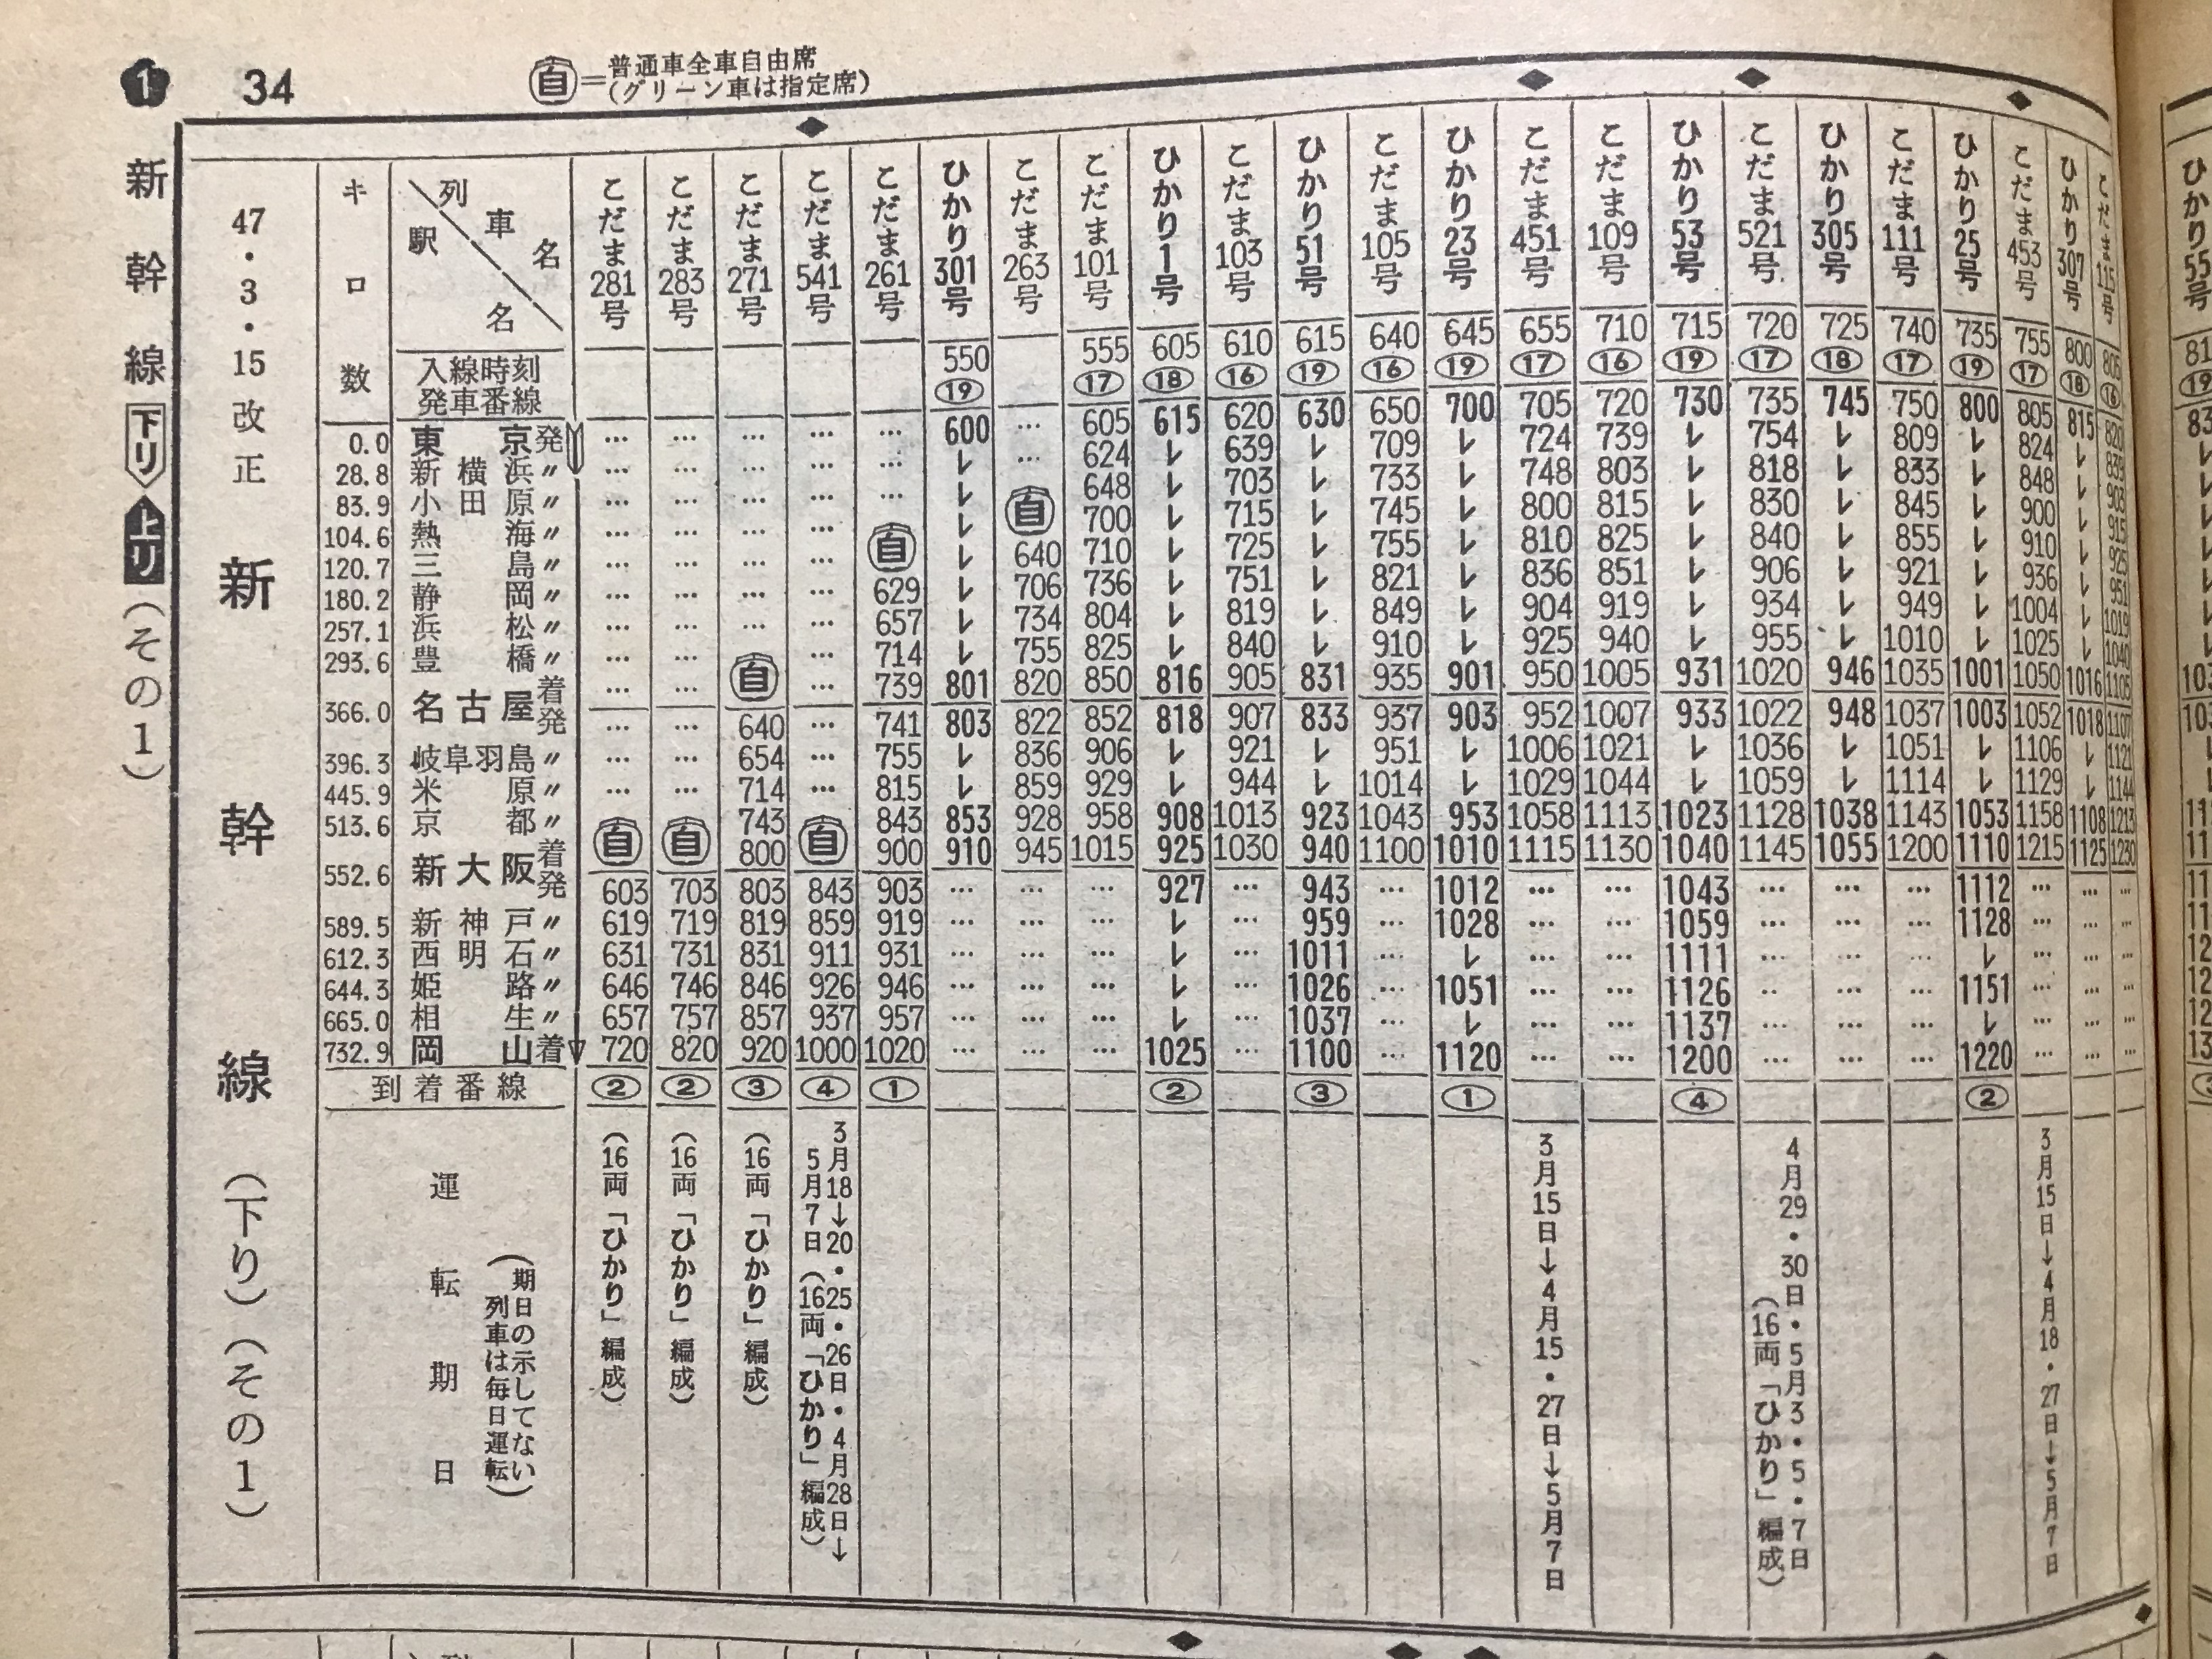 ❶ 34
自=普通車全車自由席
(グリーン車は指定席)
新幹線 下り 上り (その1)
47・3・15 改正
新幹線 (下り) (その1)
キロ数 列車名 駅名 こだま281号 こだま283号 こだま271号 こだま541号 こだま261号 ひかり301号 こだま263号 こだま101号 ひかり1号 こだま103号 ひかり51号 こだま105号 ひかり23号 こだま451号 こだま109号 ひかり53号 こだま521号 ひかり305号 こだま111号 ひかり25号 こだま453号 ひかり307号 こだま115号
入線時刻 550 555 605 610 615 640 645 655 710 715 720 725 740 735 755 800 805
発車番線 ⑲ ⑰ ⑱ ⑯ ⑲ ⑯ ⑲ ⑰ ⑯ ⑲ ⑰ ⑱ ⑰ ⑲ ⑰ ⑱ ⑯
0.0 東京発 … … … … … 600 … 605 615 620 630 650 700 705 720 730 735 745 750 800 805 815 820
28.8 新横浜〃 … … … … … レ … 624 レ 639 レ 709 レ 724 739 レ 754 レ 809 レ 824 レ 839
83.9 小田原〃 … … … … … レ 自 648 レ 703 レ 733 レ 748 803 レ 818 レ 833 レ 848 レ 903
104.6 熱海〃 … … … … 自 レ 700 レ 715 レ 745 レ 800 815 レ 830 レ 845 レ 900 レ 915
120.7 三島〃 … … … … レ 640 710 レ 725 レ 755 レ 810 825 レ 840 レ 855 レ 910 レ 925
180.2 静岡〃 … … … … 629 レ 706 736 レ 751 レ 821 レ 836 851 レ 906 レ 921 レ 936 レ 951
257.1 浜松〃 … … … … 657 レ 734 804 レ 819 レ 849 レ 904 919 レ 934 レ 949 レ 1004 レ 1019
293.6 豊橋〃 … … 自 … 714 レ 755 825 レ 840 レ 910 レ 925 940 レ 955 レ 1010 レ 1025 レ 1040
366.0 名古屋着 … … … 739 801 820 850 816 905 831 935 901 950 1005 931 1020 946 1035 1001 1050 1016 1105
発 … … 640 … 741 803 822 852 818 907 833 937 903 952 1007 933 1022 948 1037 1003 1052 1018 1107
396.3 岐阜羽島〃 … … 654 … 755 レ 836 906 レ 921 レ 951 レ 1006 1021 レ 1036 レ 1051 レ 1106 レ 1121
445.9 米原〃 … … 714 … 815 レ 859 929 レ 944 レ 1014 レ 1029 1044 レ 1059 レ 1114 レ 1129 レ 1144
513.6 京都〃 自 自 743 自 843 853 928 958 908 1013 923 1043 953 1058 1113 1023 1128 1038 1143 1053 1158 1108 1213
552.6 新大阪着 800 900 910 945 1015 925 1030 940 1100 1010 1115 1130 1040 1145 1055 1200 1110 1215 1125 1230
発 603 703 803 843 903 … … … 927 … 943 … 1012 … … 1043 … … … 1112 … … …
589.5 新神戸〃 619 719 819 859 919 … … … レ … 959 … 1028 … … 1059 … … … 1128 … … …
612.3 西明石〃 631 731 831 911 931 … … … レ … 1011 … レ … … 1111 … … … レ … … …
644.3 姫路〃 646 746 846 926 946 … … … レ … 1026 … 1051 … … 1126 … … … 1151 … … …
665.0 相生〃 657 757 857 937 957 … … … レ … 1037 … レ … … 1137 … … … レ … … …
732.9 岡山着 720 820 920 1000 1020 … … … 1025 … 1100 … 1120 … … 1200 … … … 1220 … … …
到着番線 ② ② ③ ④ ① ② ③ ① ④ ②
運転期日
(期日の示してない
列車は毎日運転)
(16両「ひかり」編成)
(16両「ひかり」編成)
(16両「ひかり」編成)
3月18→20・25・26日・4月28日→
5月7日(16両「ひかり」編成)
3月15日→4月15・27日→5月7日
4月29・30日・5月3・5・7日
(16両「ひかり」編成)
3月15日→4月18・27日→5月7日
ひかり55号